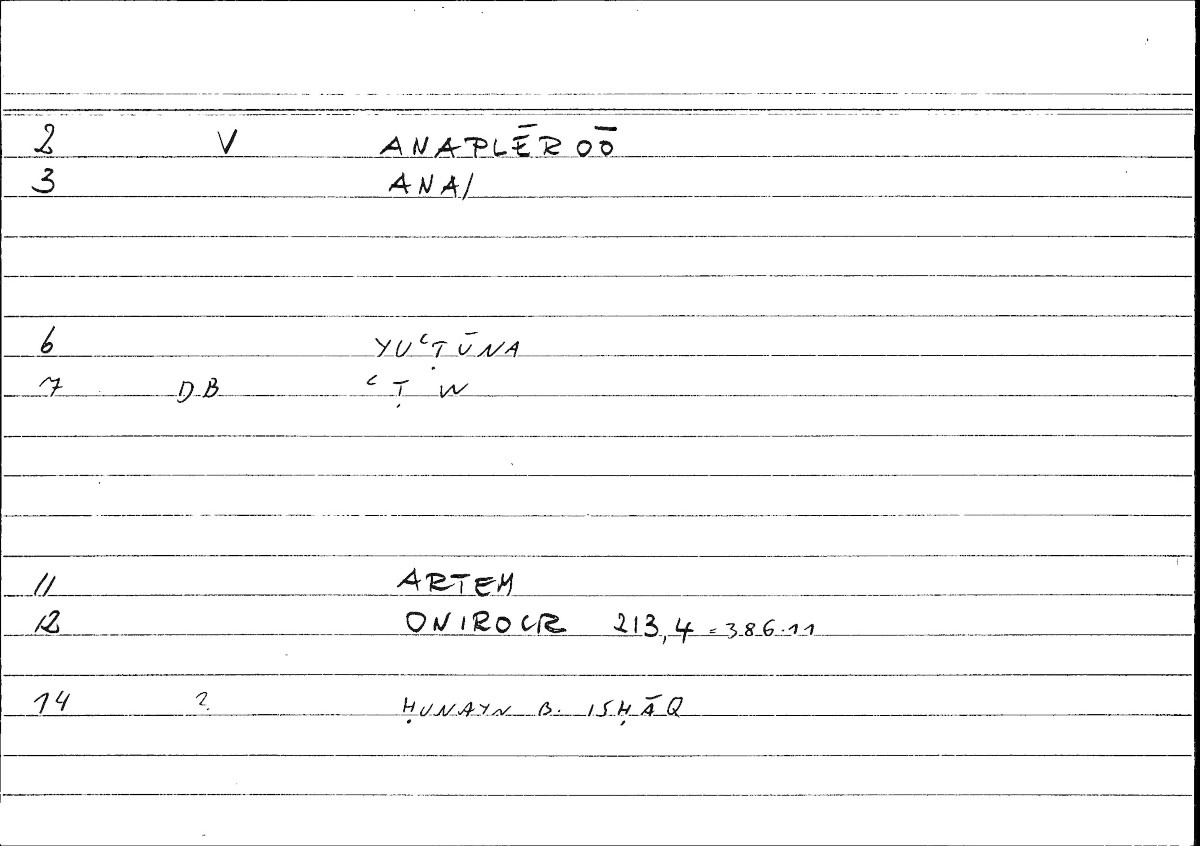 2 V ANAPLĒROŌ
3 ANA/
6 YUʿṬŪNA
7 DB ʿ Ṭ W
11 ARTEM
12 ONIROCR 213,4 = 386.11
14 ? ḤUNAYN B. ISḤĀQ